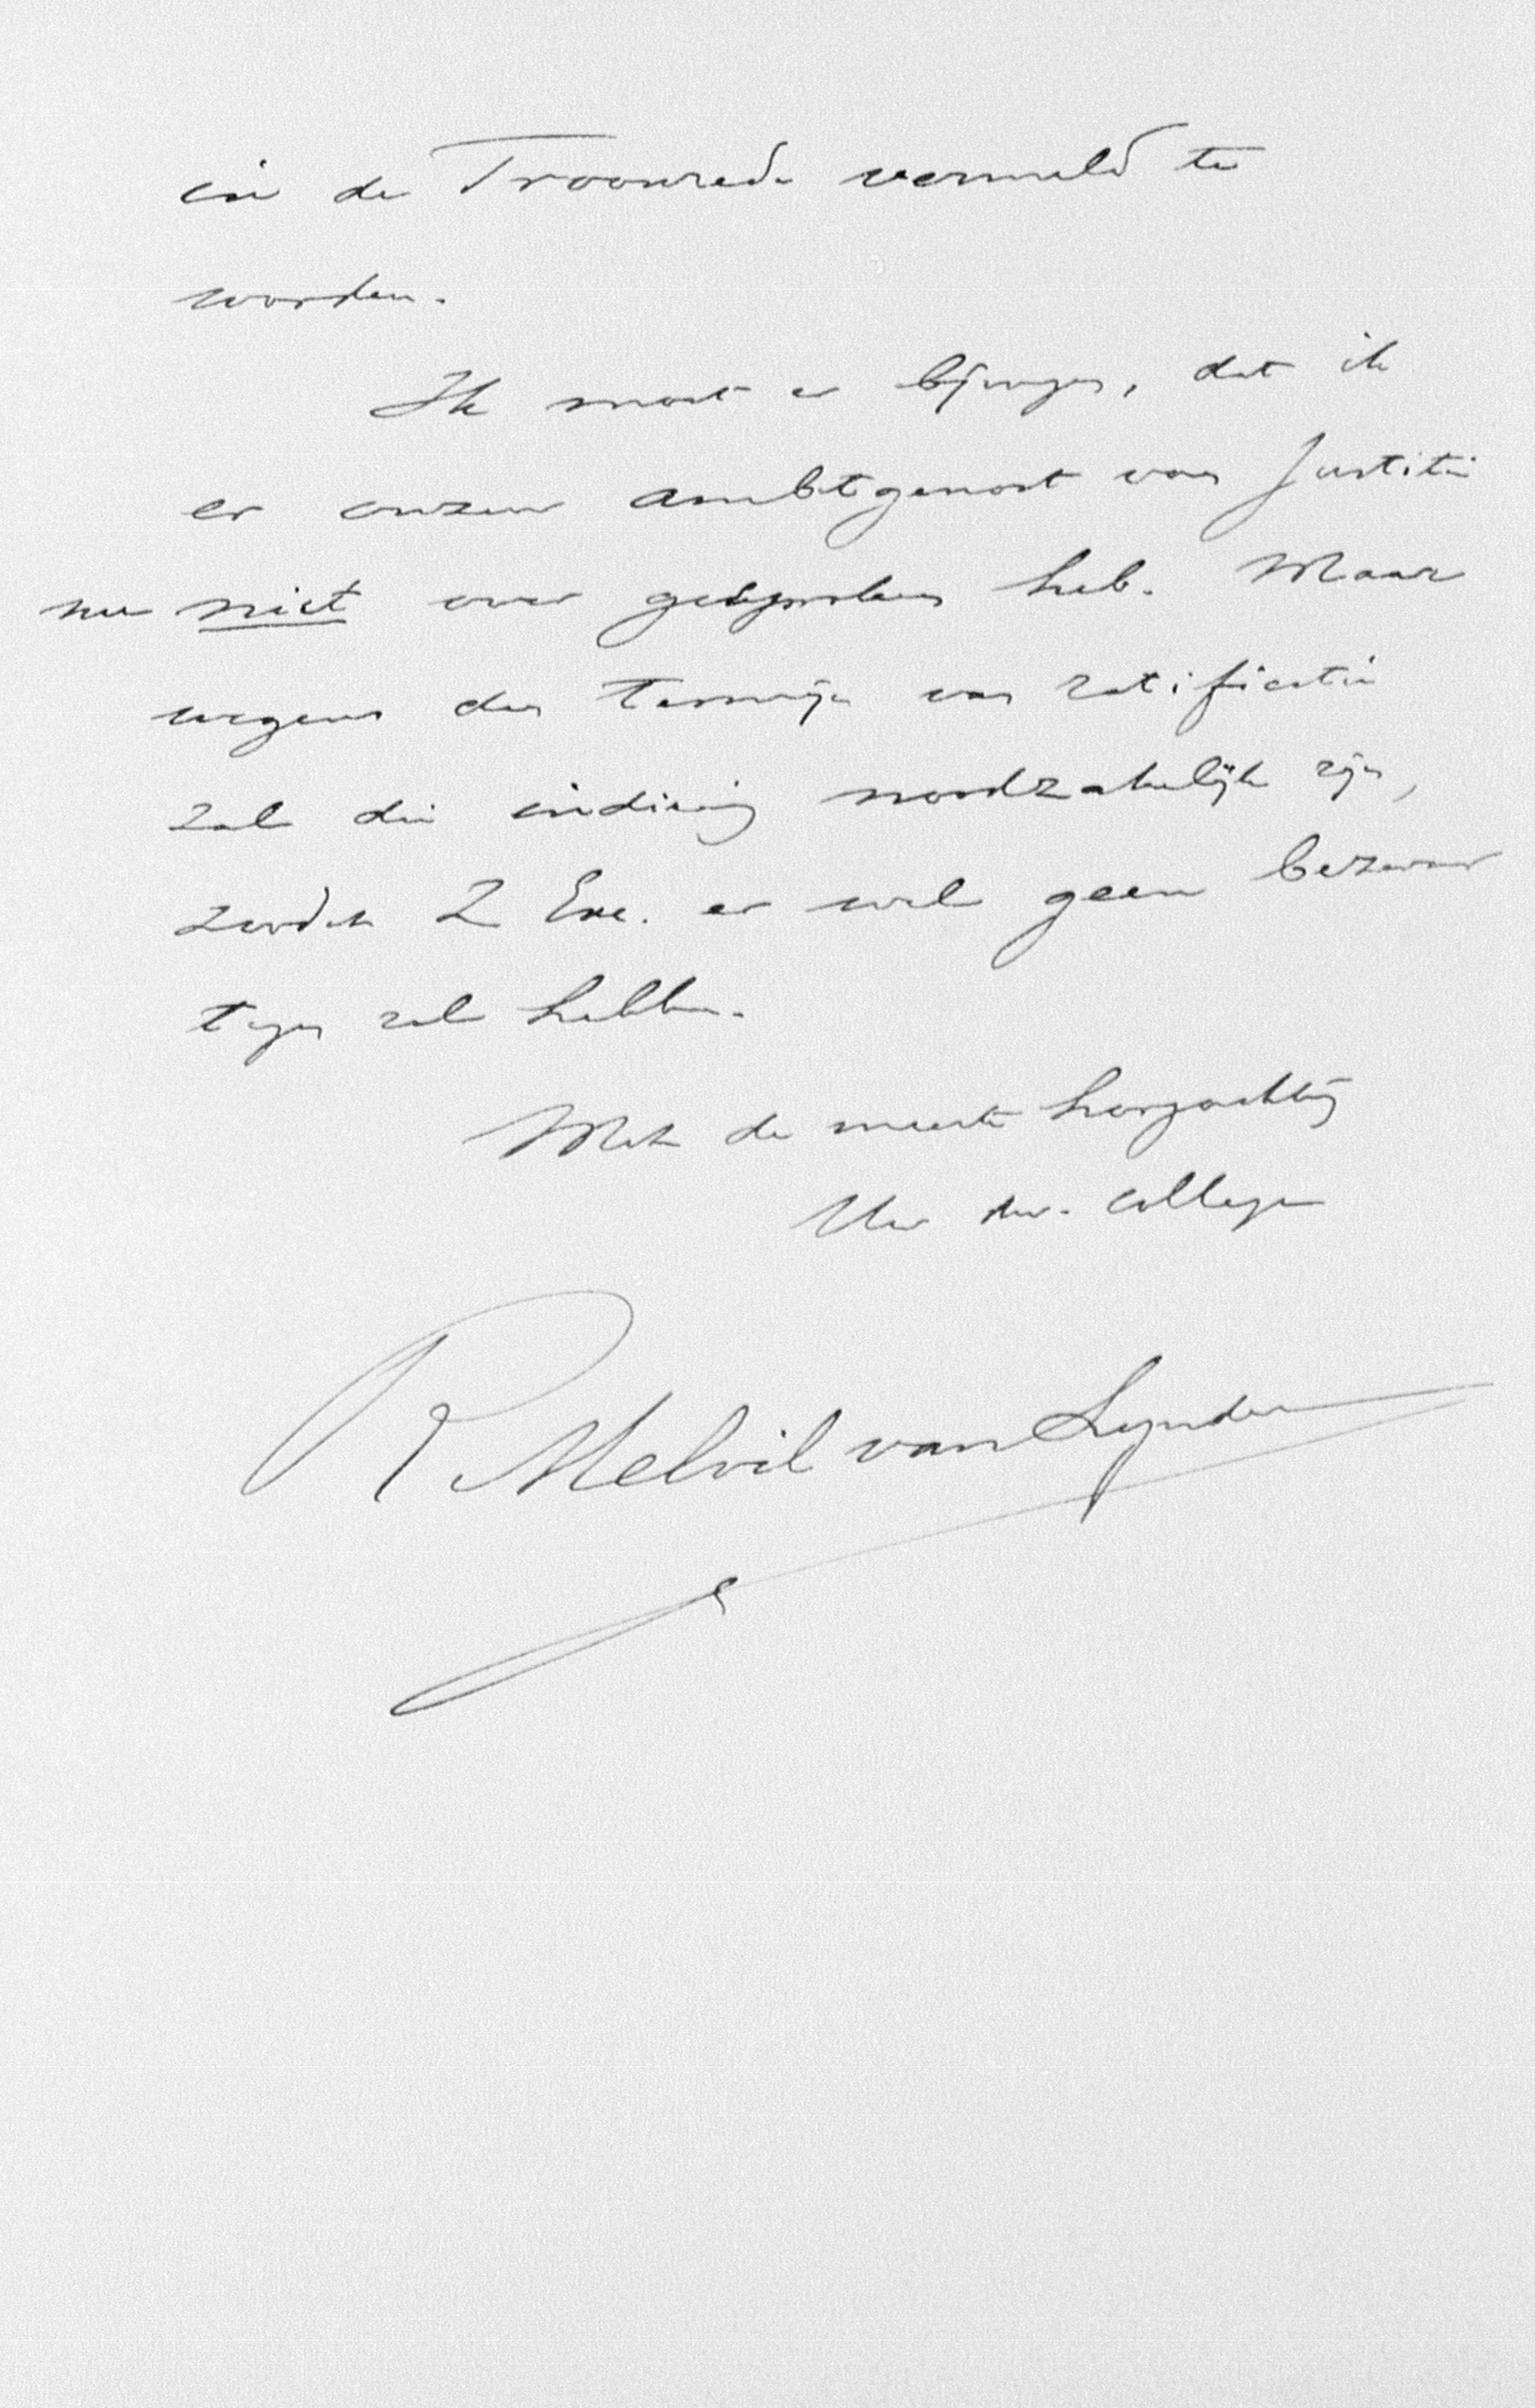 in de Troonrede vermeld te
worden.
Ik moet er bijvoegen, dat ik
er onzen ambtgenoot van Justitie
nu niet over gesproken heb. Maar
wegens den termijn van ratificatie
zal die indiening noodzakelijk zijn,
zoodat Z Exc. er wel geen bezwaar
tegen zal hebben.
Met de meeste hoogachting
Uw dw. collega
R Melvil van Lynden